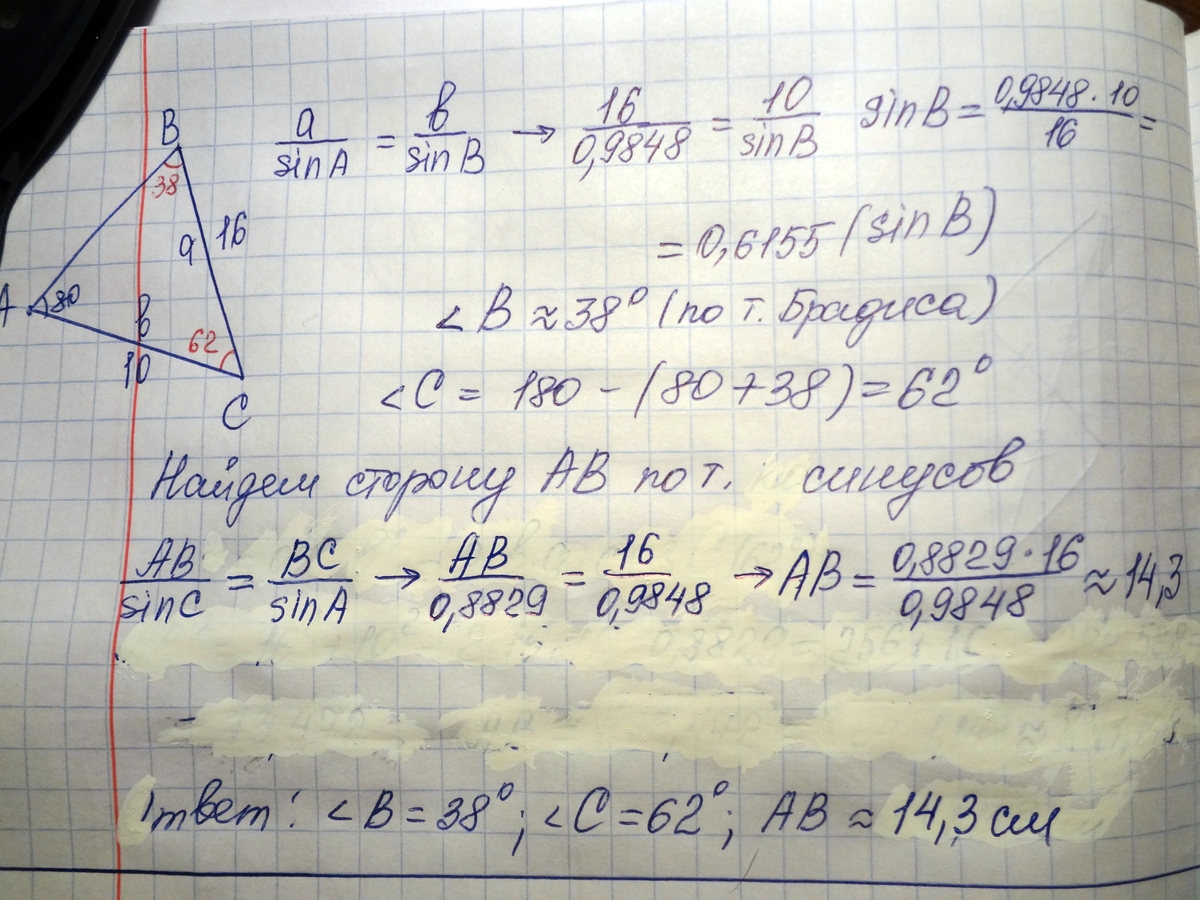 B
38
a 16
A 80
в
10
62
C
a/sinA = в/sinB → 16/0,9848 = 10/sinB sinB = 0,9848·10/16 =
= 0,6155 (sinB)
∠B ≈ 38° (по т. Брадиса)
∠C = 180 - (80+38) = 62°
Найдем сторону AB по т. синусов
AB/sinC = BC/sinA → AB/0,8829 = 16/0,9848 → AB = 0,8829·16/0,9848 ≈ 14,3
Ответ: ∠B = 38°; ∠C = 62°; AB ≈ 14,3 см